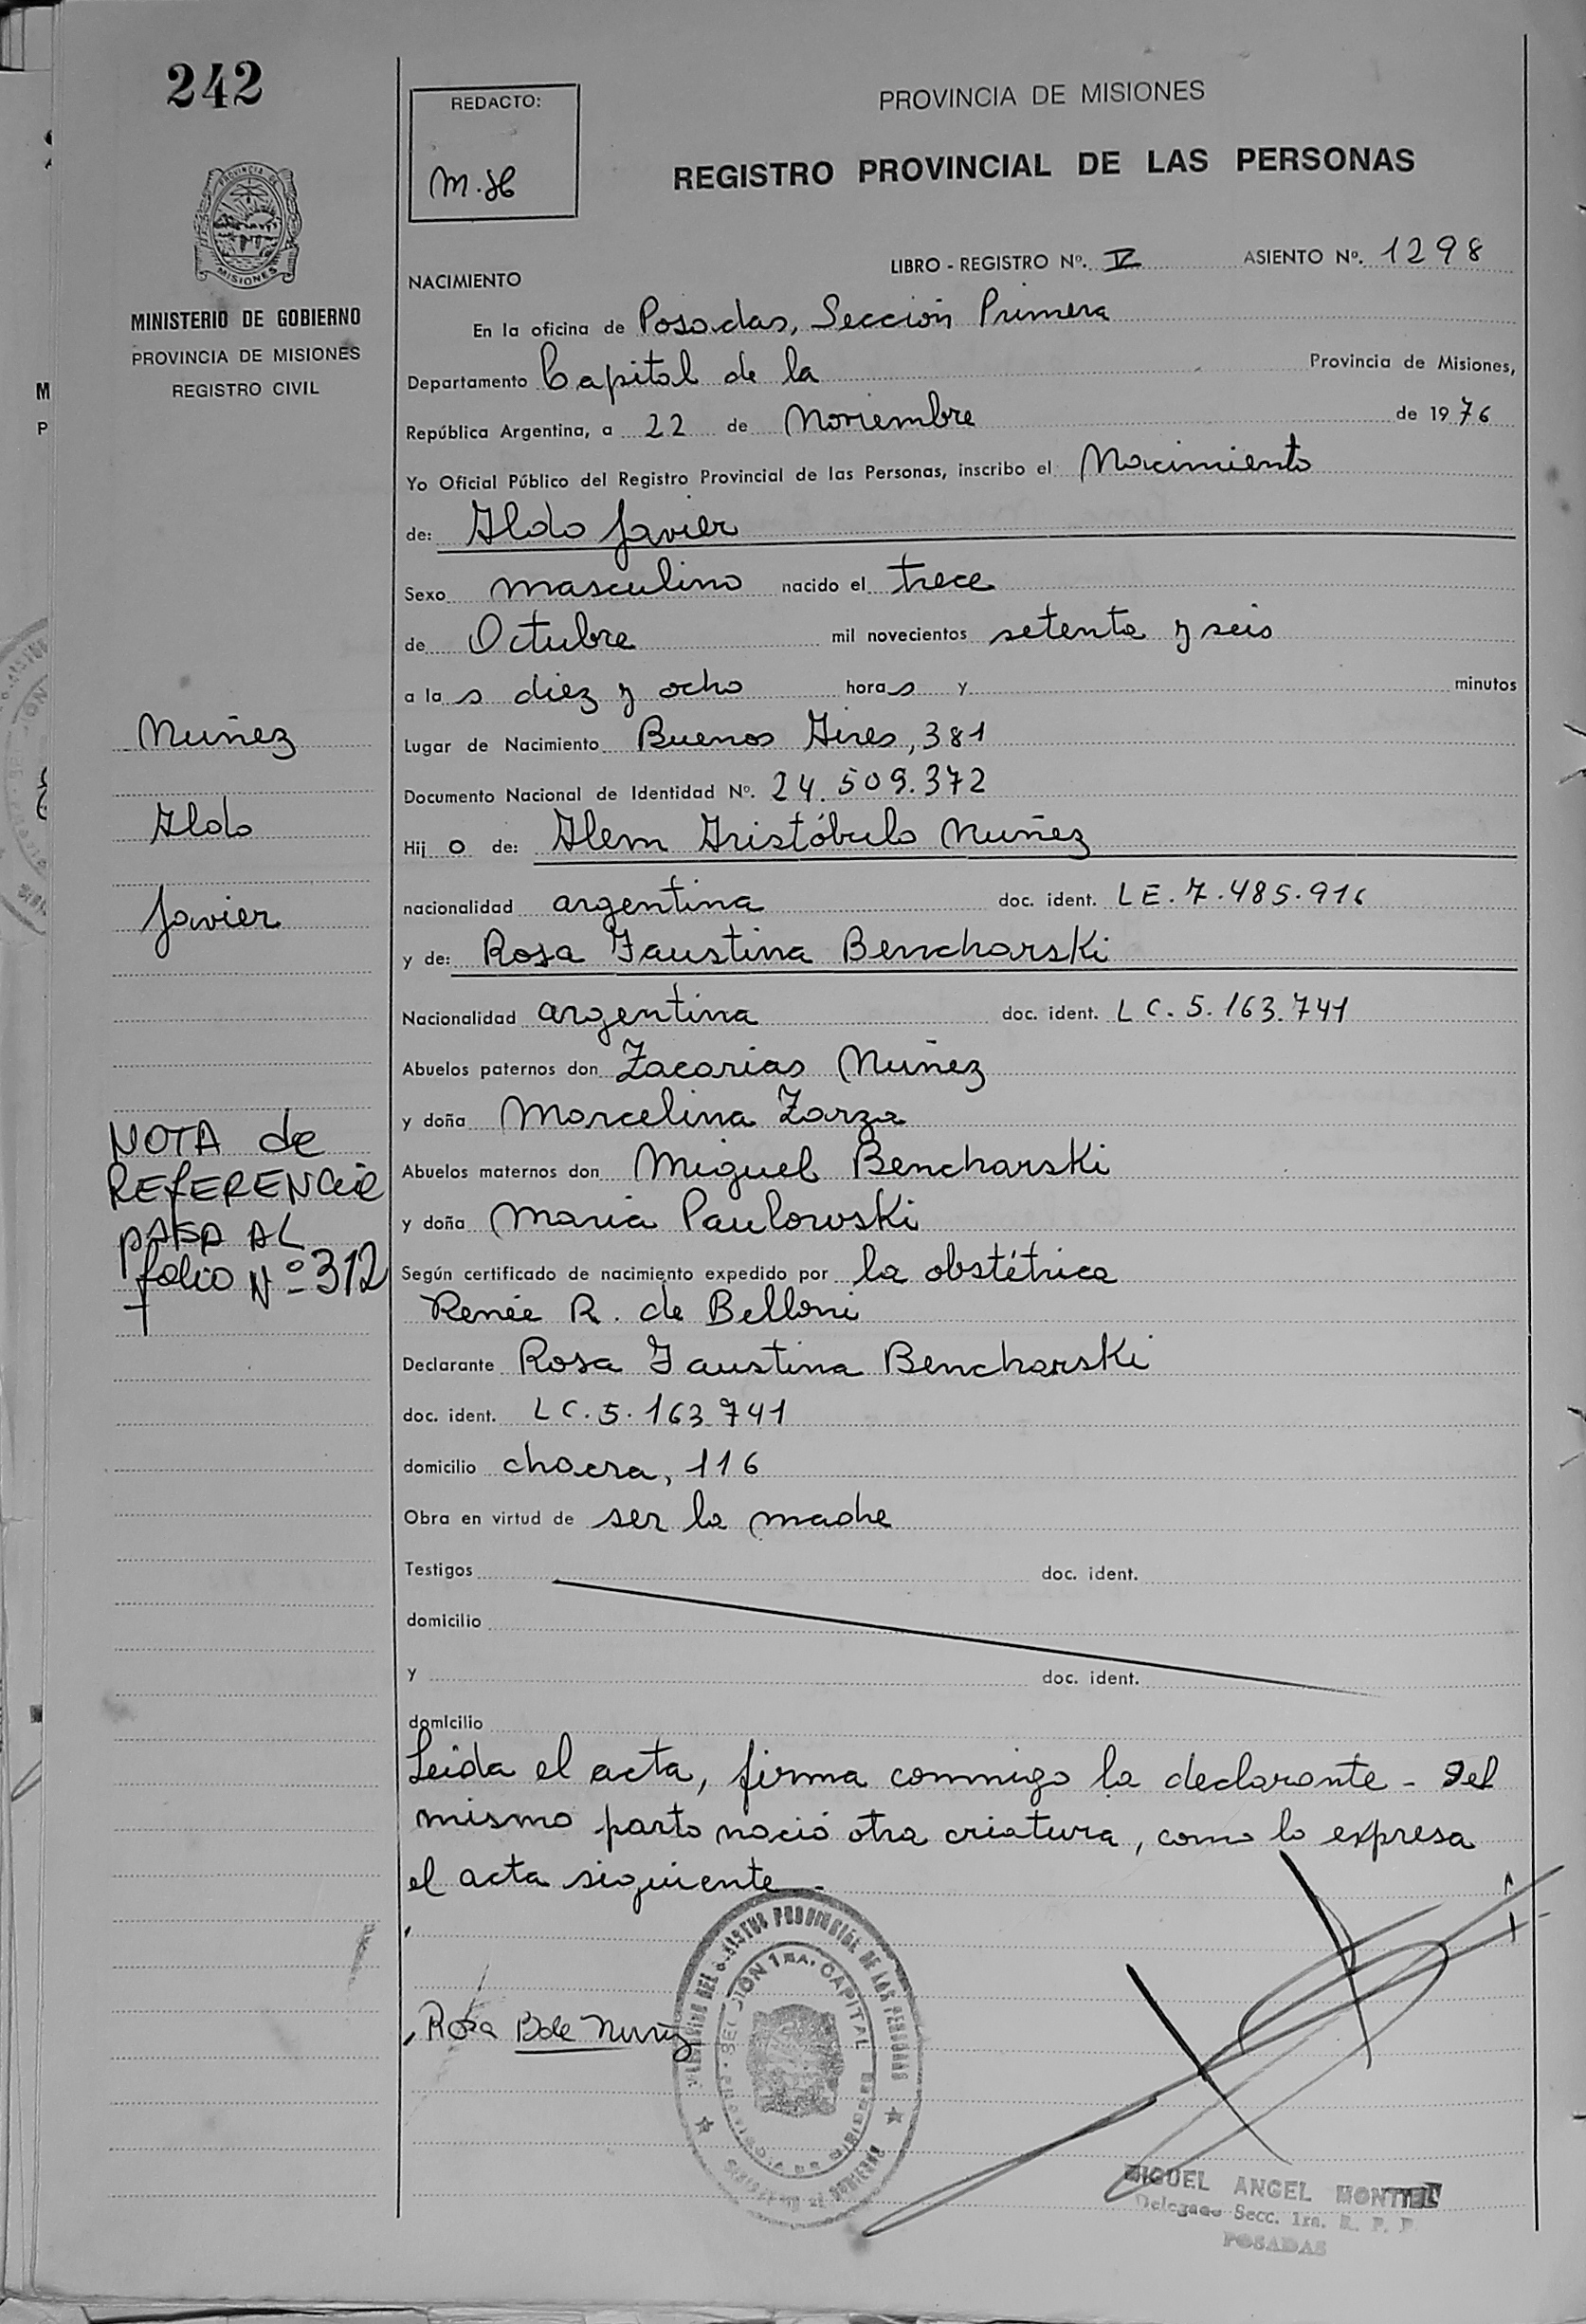 242
REDACTO:
M.H
PROVINCIA DE MISIONES
REGISTRO PROVINCIAL DE LAS PERSONAS
MISIONES
MINISTERIO DE GOBIERNO
PROVINCIA DE MISIONES
REGISTRO CIVIL
LIBRO - REGISTRO Nº. IV ASIENTO Nº. 1298
NACIMIENTO
En la oficina de Posadas, Sección Primera
Departamento Capital de la Provincia de Misiones,
República Argentina, a 22 de Noviembre de 1976
Yo Oficial Público del Registro Provincial de las Personas, inscribo el Nacimiento
de: Aldo Javier
Sexo masculino nacido el trece
de Octubre mil novecientos setenta y seis
a las diez y ocho horas y minutos
Lugar de Nacimiento Buenos Aires, 381
Documento Nacional de Identidad Nº. 24.509.372
Hijo de: Alem Aristóbulo Nuñez
nacionalidad argentina doc. ident. LE.7.485.916
y de: Rosa Faustina Bencharski
Nacionalidad argentina doc. ident. LC.5.163.741
Abuelos paternos don Zacarias Nuñez
y doña Marcelina Zarza
Abuelos maternos don Miguel Bencharski
y doña Maria Paulowski
Según certificado de nacimiento expedido por la obstétrica
Renée R. de Belloni
Declarante Rosa Faustina Bencharski
doc. ident. LC.5.163.741
domicilio chacra, 116
Obra en virtud de ser la madre
Testigos doc. ident.
domicilio
y doc. ident.
domicilio
Leida el acta, firma conmigo la declarante - Del
mismo parto nació otra criatura, como lo expresa
el acta siguiente.-
Nuñez
Aldo
Javier
NOTA de
REFERENCIA
PASA AL
folio Nº 312
Rosa B de Nuñez
SECCION 1RA. CAPITAL
MIGUEL ANGEL MONTIEL
Delegado Secc. 1ra. R. P. P.
POSADAS